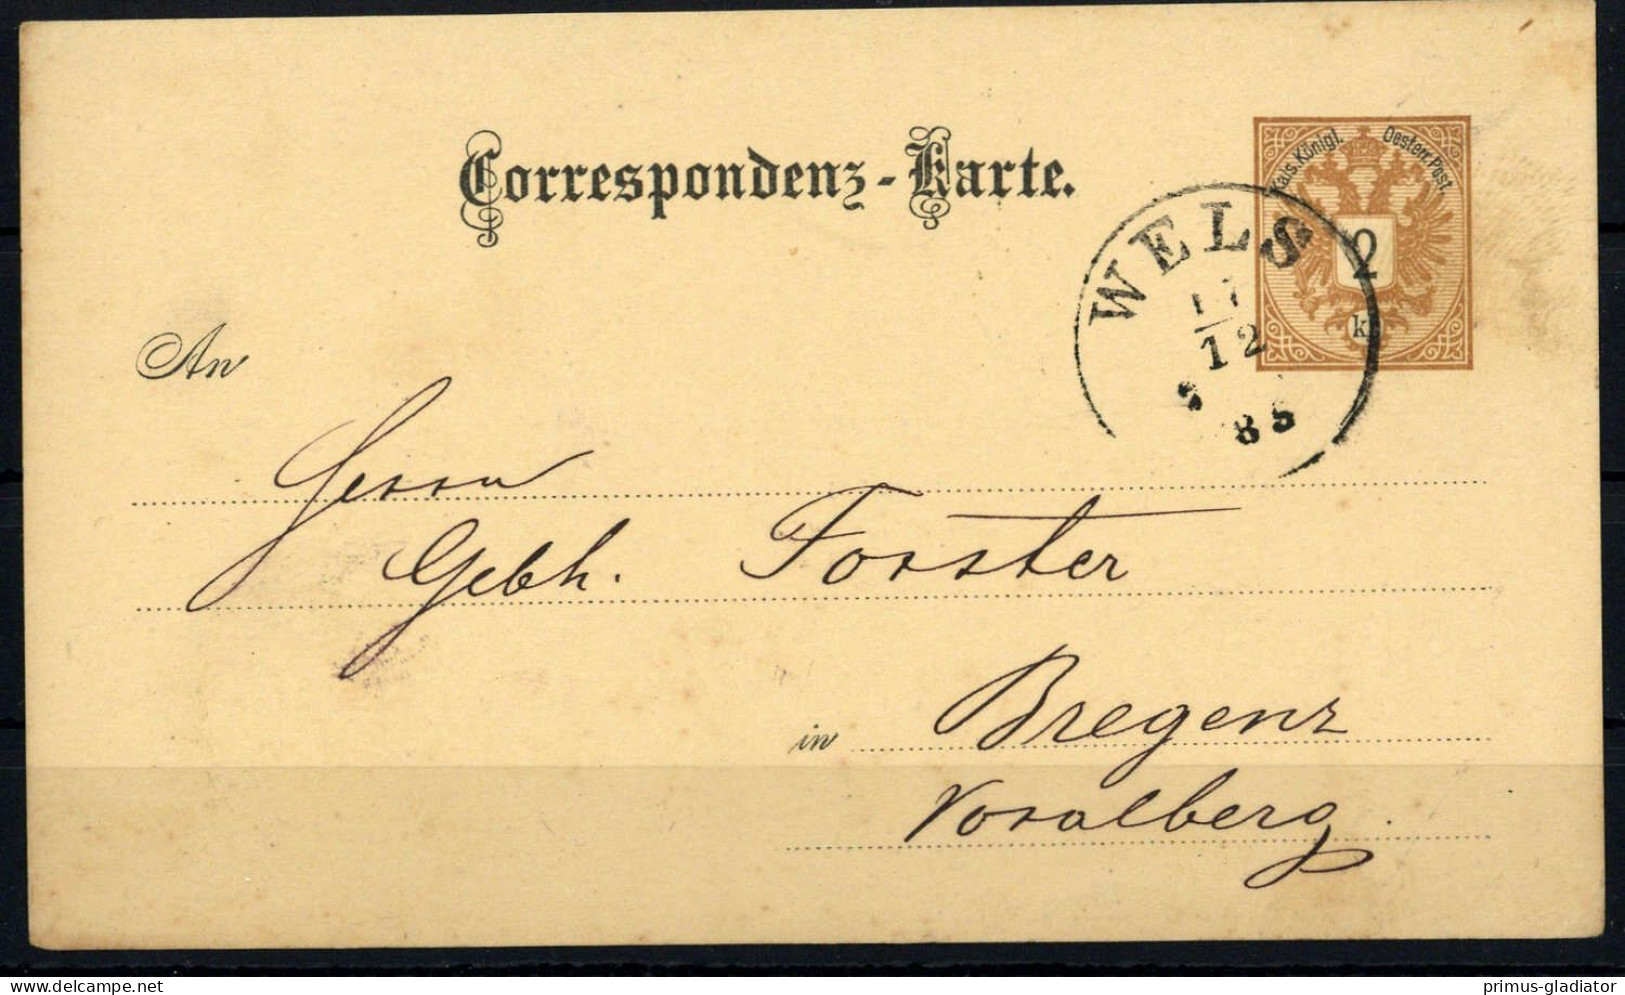 Correspondenz-Karte.
Kais. Königl. Oesterr. Post
2
kr
WELS
12
85
An
Herrn
Gebh. Forster
in Bregenz
Voralberg.
primus-gladiator